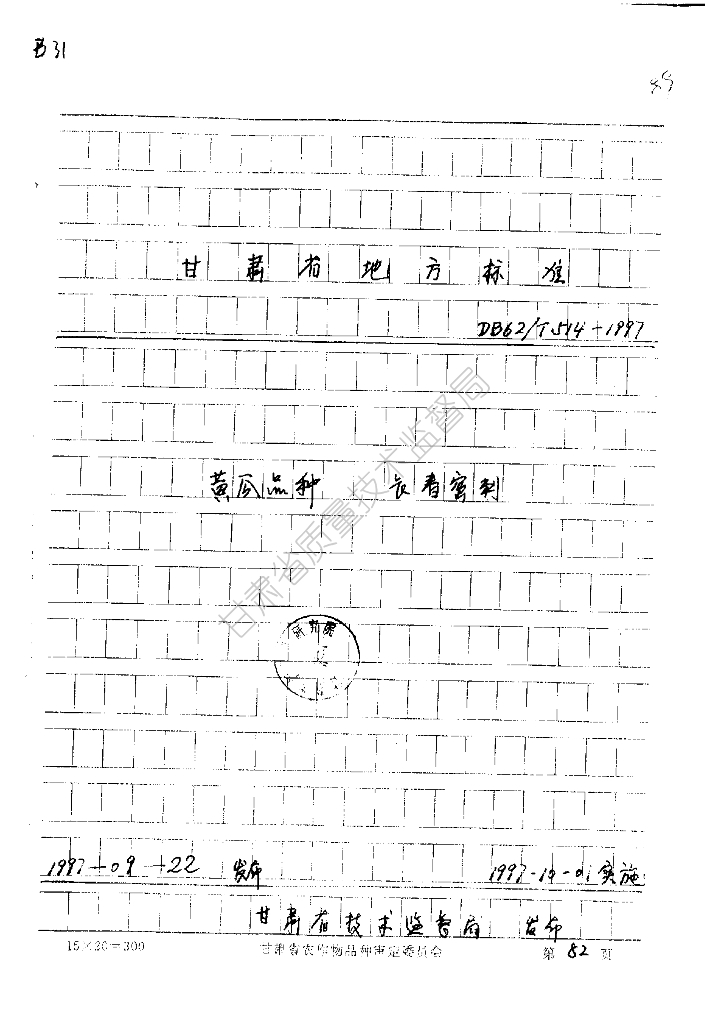 B31
甘肃省地方标准
DB62/T514-1997
黄瓜品种 长春密刺
甘肃省质量技术监督局
研究院
1997-09-22 发布
1997-10-01 实施
甘肃省技术监督局 发布
15×20=300 甘肃省农作物品种审定委员会 第 82 页